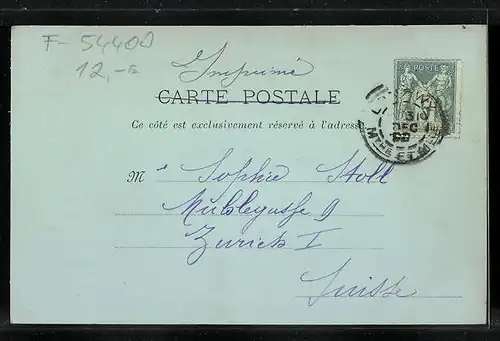 F-54400
12,-
Imprimé
CARTE POSTALE
Ce côté est exclusivement réservé à l'adresse
POSTE
DEC
Mlle Sophie Stoll
Mühlegasse 9
Zürich I
Suisse